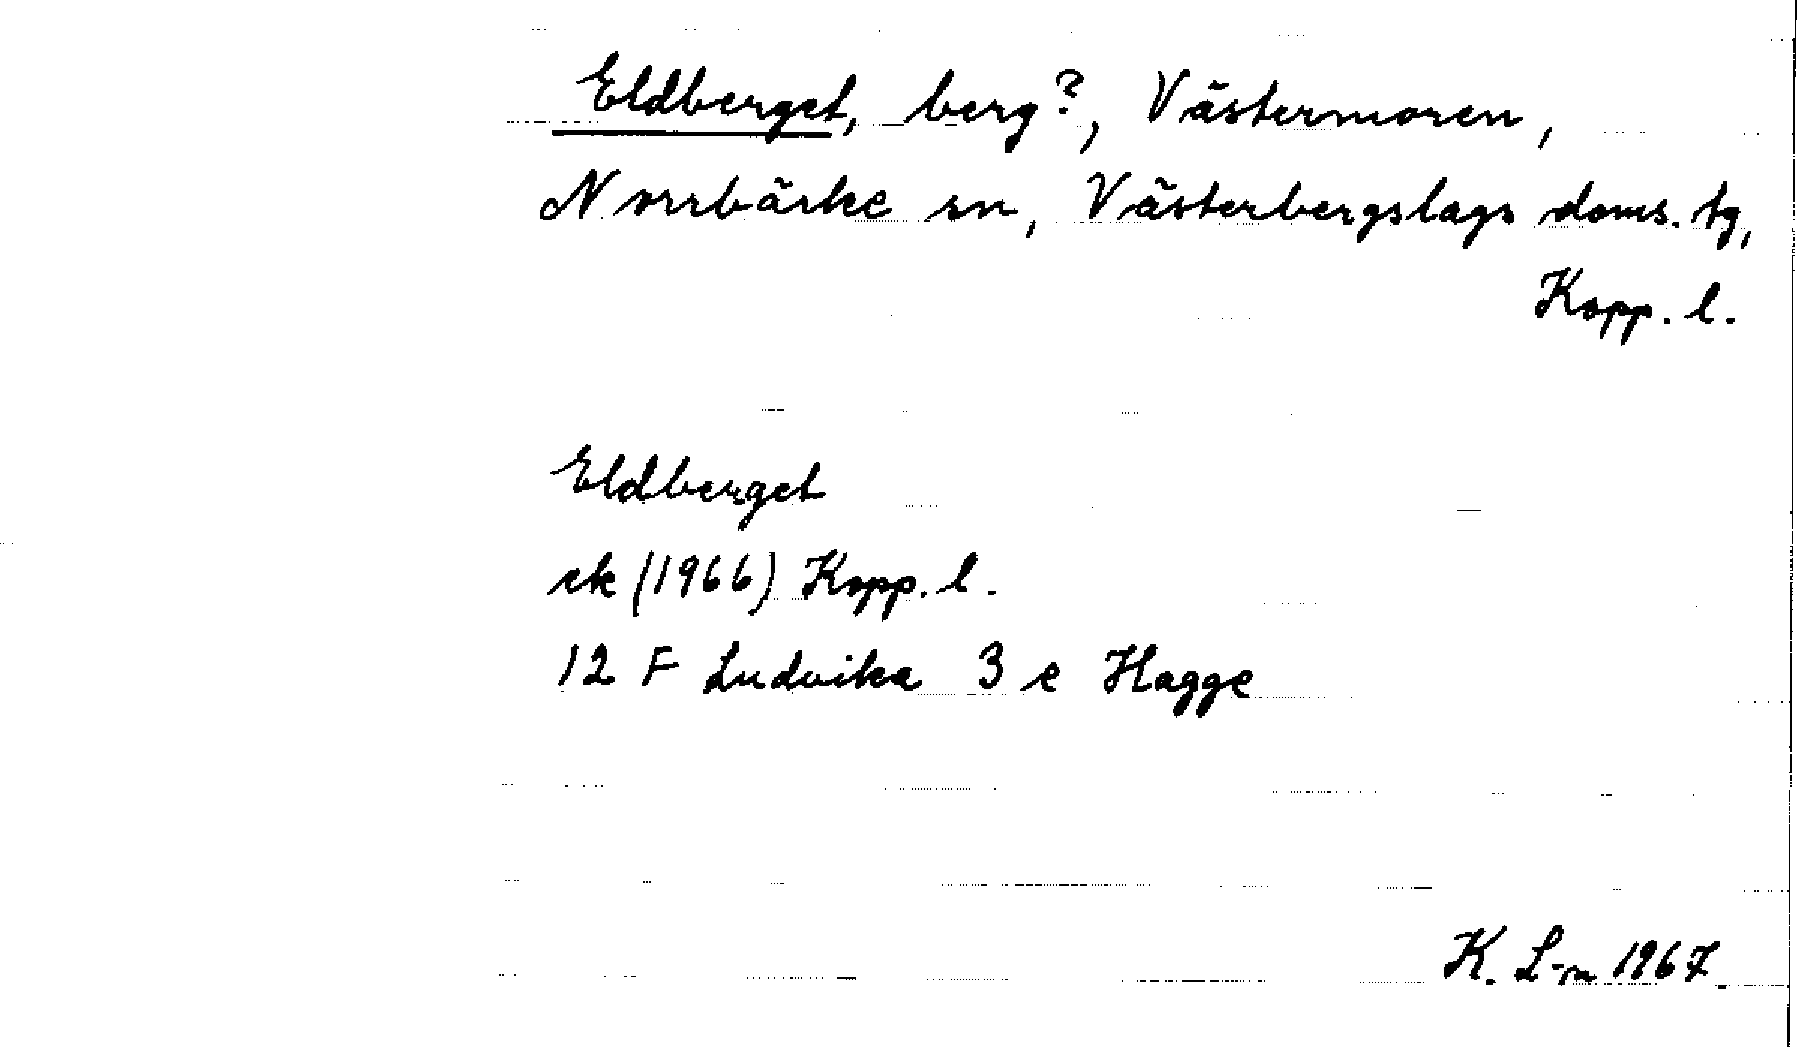 Eldberget, berg?, Västermoren,
Norrbärke sn, Västerbergslags doms. tg,
Kopp. l.
Eldberget
ek (1966) Kopp. l.
12 F Ludvika 3 e Hagge
K. L-m 1967